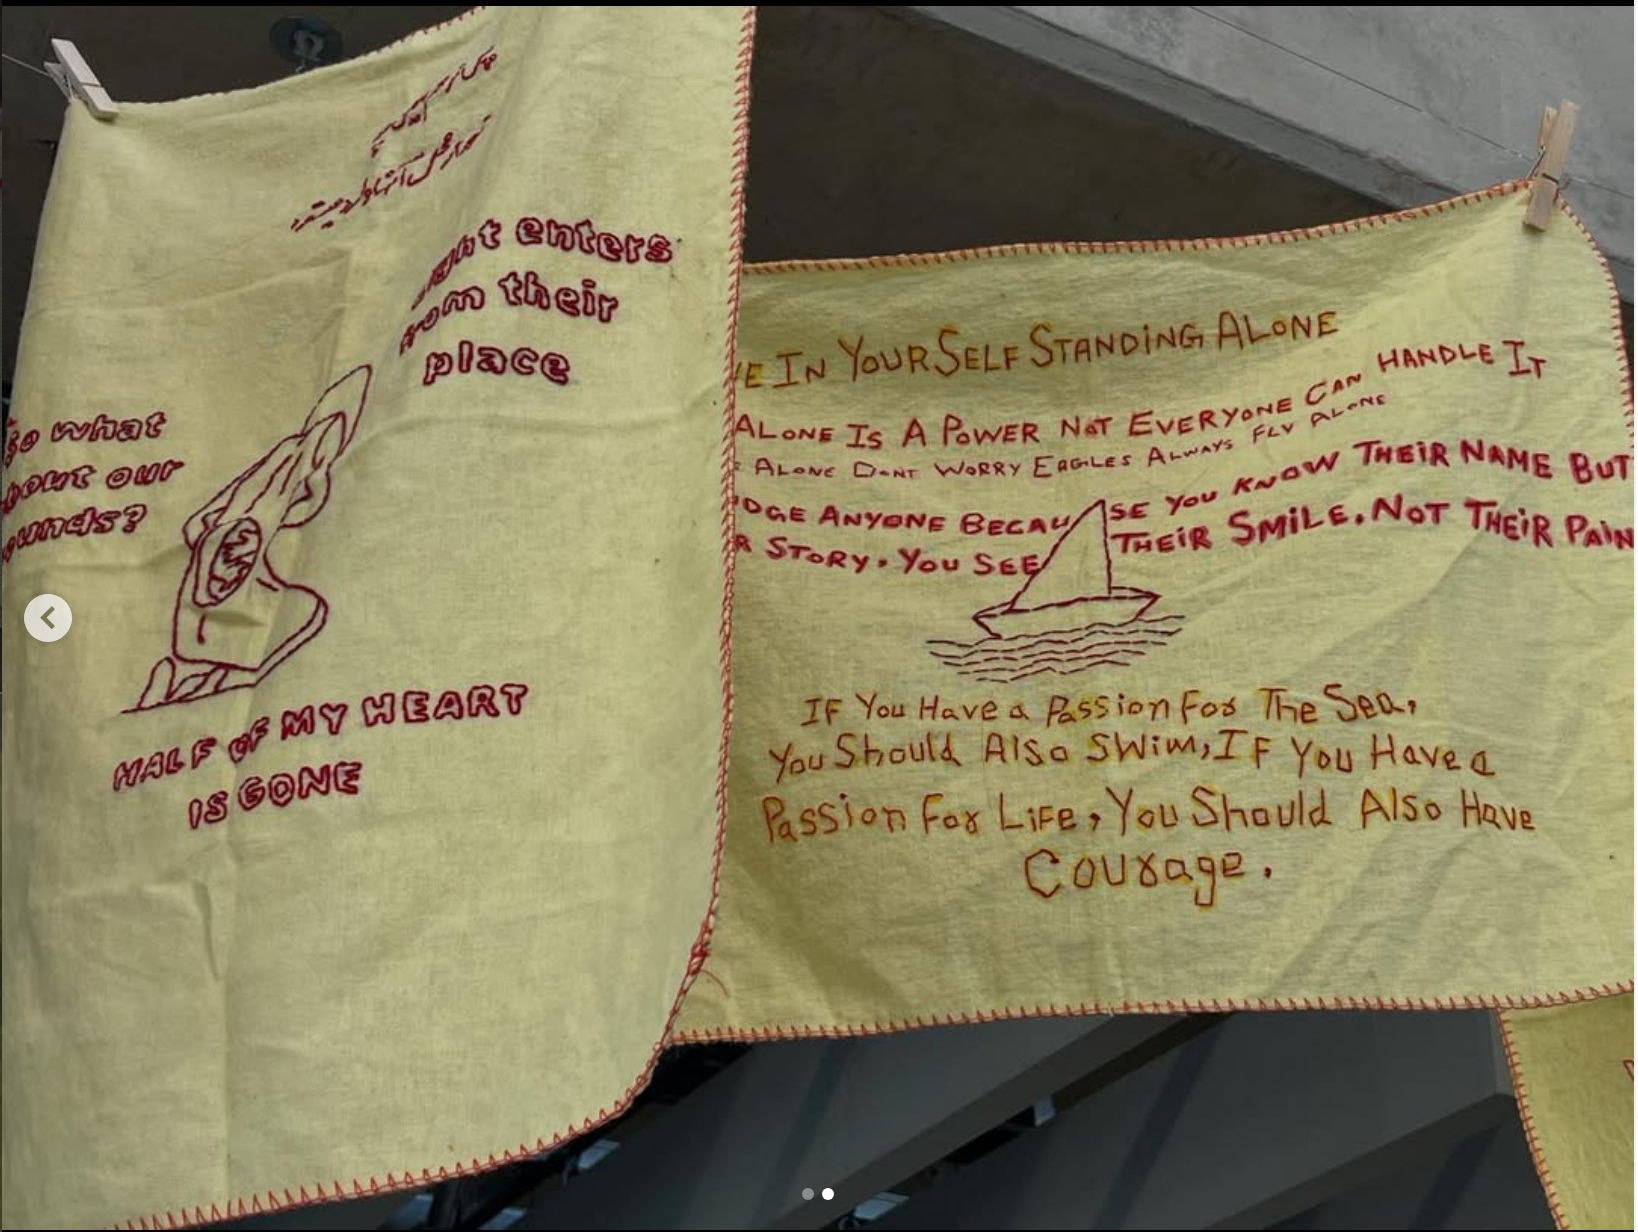 enters
their
place
so what
our
HALF OF MY HEART
IS GONE
IN YOURSELF STANDING ALONE
ALONE IS A POWER NOT EVERYONE CAN HANDLE IT
ALONE DONT WORRY EAGLES ALWAYS FLY ALONE
ANYONE BECAUSE YOU KNOW THEIR NAME BUT
STORY. YOU SEE THEIR SMILE. NOT THEIR PAIN
IF You Have a Passion For The Sea,
You Should Also Swim, IF You Have a
Passion For Life, You Should Also Have
Courage.